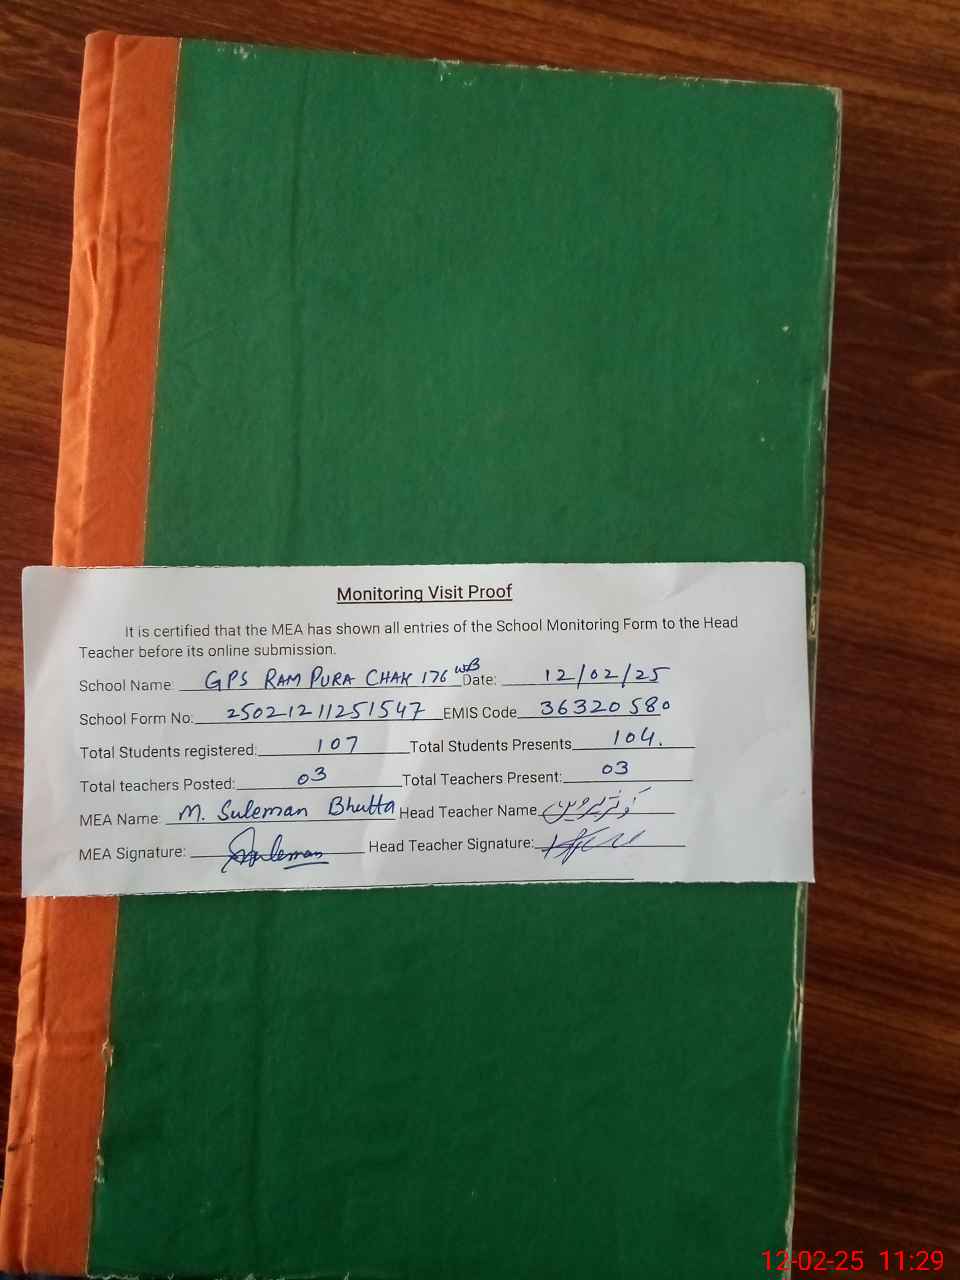 Monitoring Visit Proof
It is certified that the MEA has shown all entries of the School Monitoring Form to the Head
Teacher before its online submission.
School Name: GPS RAM PURA CHAK 176 WB Date: 12/02/25
School Form No: 25021211251547 EMIS Code 36320580
Total Students registered: 107 Total Students Presents 104.
Total teachers Posted: 03 Total Teachers Present: 03
MEA Name: M. Suleman Bhutta Head Teacher Name
MEA Signature: Suleman Head Teacher Signature:
12-02-25 11:29